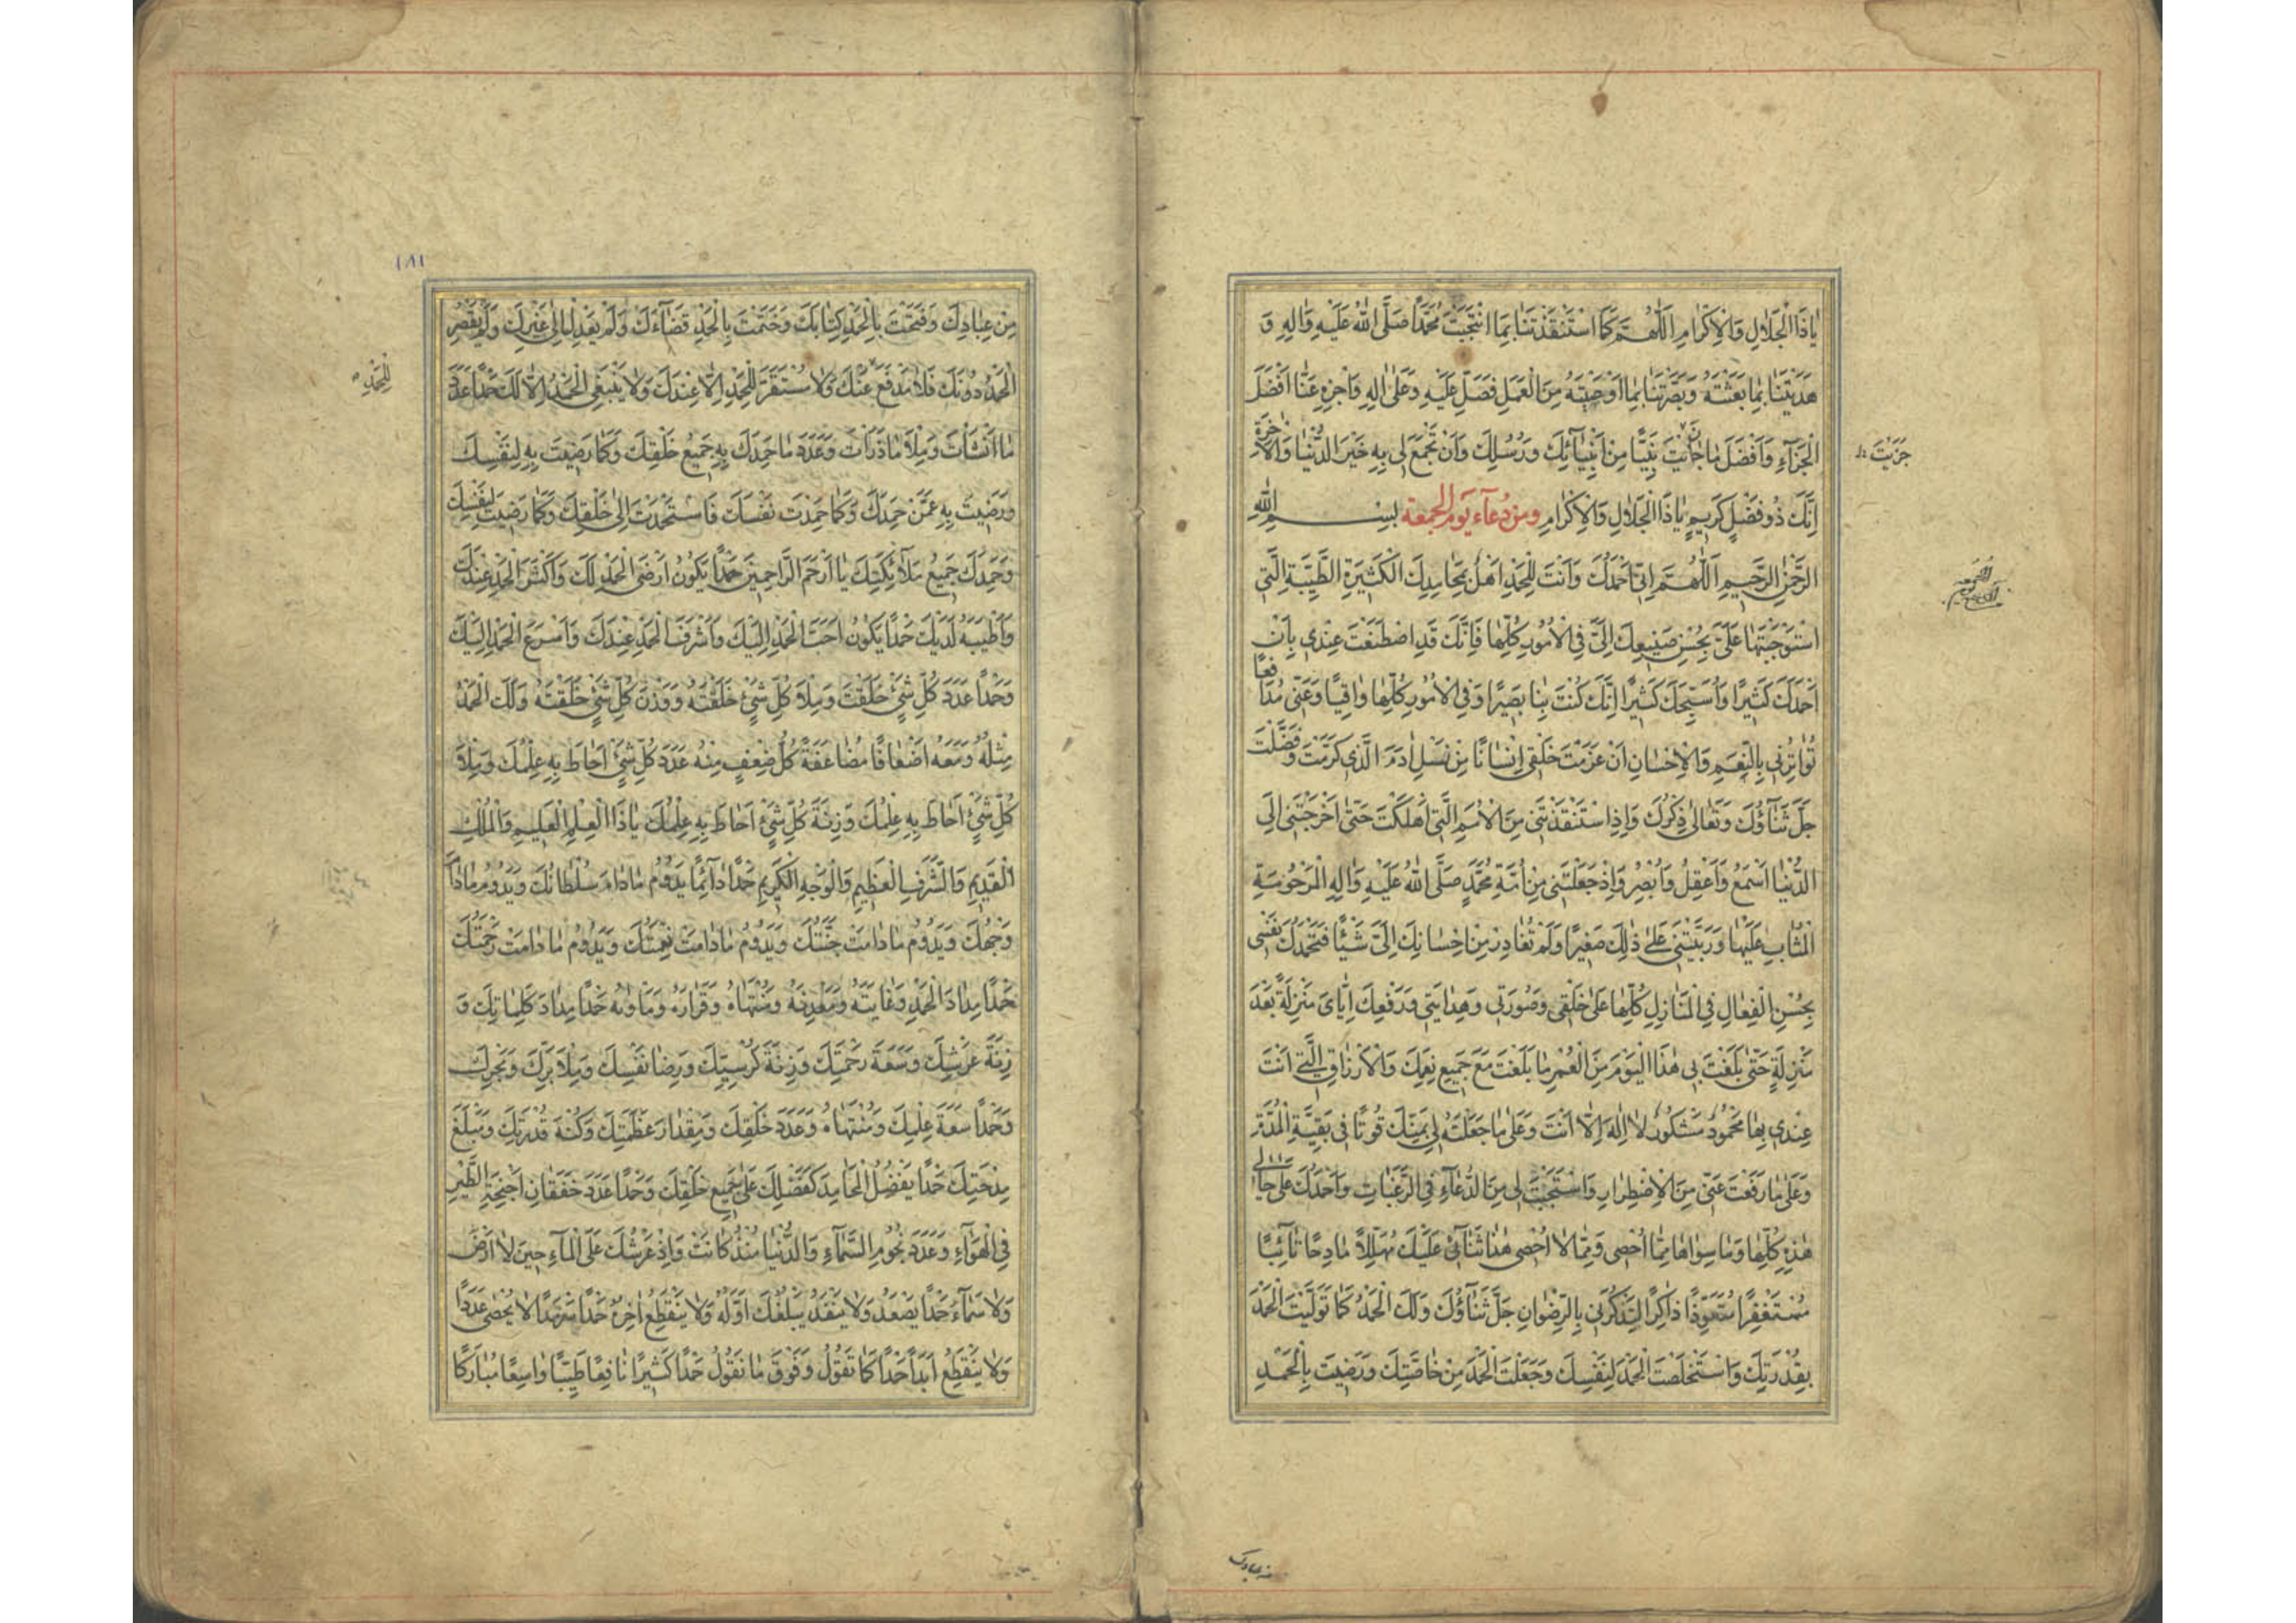 يٰا ذَا الْجَلٰالِ وَالْاِكْرٰامِ اَللّٰهُمَّ كَمَا اسْتَنْقَذْتَنٰا بِمَا انْتَجَبْتَ مُحَمَّدًا صَلَّى اللّٰهُ عَلَيْهِ وَاٰلِهِ وَ
هَدَيْتَنٰا بِمٰا بَعَثْتَهُ وَبَصَّرْتَنٰا بِمٰا اَوْصَيْتَهُ مِنَ الْعَمَلِ فَصَلِّ عَلَيْهِ وَعَلٰى اٰلِهِ وَاجْزِهِ عَنّٰا اَفْضَلَ
الْجَزٰاءِ وَاَفْضَلَ مٰا جٰازَيْتَ نَبِيًّا مِنْ اَنْبِيٰائِكَ وَرُسُلِكَ وَاَنْ تَجْمَعَ لِى بِهِ خَيْرَ الدُّنْيٰا وَالْاٰخِرَةِ
جَزَيْتَ
اِنَّكَ ذُو فَضْلٍ كَرِيمٍ يٰا ذَا الْجَلٰالِ وَالْاِكْرٰامِ ومن دُعٰاء يَوم الجمعة بِسْمِ اللّٰهِ
الرَّحْمٰنِ الرَّحِيمِ اَللّٰهُمَّ اِنِّى اَحْمَدُكَ وَاَنْتَ لِلْحَمْدِ اَهْلٌ بِمَحٰامِدِكَ الْكَثِيرَةِ الطَّيِّبَةِ الَّتِى
اسْتَوْجَبْتَهٰا عَلَىَّ بِحُسْنِ صَنِيعِكَ اِلَىَّ فِى الْاُمُورِ كُلِّهٰا فَاِنَّكَ قَدِ اصْطَنَعْتَ عِنْدِى بِاَنْ
اَحْمَدَكَ كَثِيرًا وَاُسَبِّحَكَ كَثِيرًا اِنَّكَ كُنْتَ بِنٰا بَصِيرًا وَفِى الْاُمُورِ كُلِّهٰا وٰاقِيًا وَعَنِّى مُدٰافِعًا
تُوٰاتِرُنِى بِالنِّعَمِ وَالْاِحْسٰانِ اَنْ عَزَمْتَ خَلْقِى اِنْسٰانًا مِنْ نَسْلِ اٰدَمَ الَّذِى كَرَّمْتَ وَفَضَّلْتَ
جَلَّ ثَنٰاؤُكَ وَتَعٰالٰى ذِكْرُكَ وَاِذِ اسْتَنْقَذْتَنِى مِنَ الْاُمَمِ الَّتِى اَهْلَكْتَ حَتّٰى اَخْرَجْتَنِى اِلَى
الدُّنْيٰا اَسْمَعُ وَاَعْقِلُ وَاُبْصِرُ وَاِذْ جَعَلْتَنِى مِنْ اُمَّةِ مُحَمَّدٍ صَلَّى اللّٰهُ عَلَيْهِ وَاٰلِهِ الْمَرْحُومَةِ
الْمُثٰابِ عَلَيْهٰا وَرَبَّيْتَنِى عَلٰى ذٰلِكَ صَغِيرًا وَلَمْ تُغٰادِرْ مِنْ اِحْسٰانِكَ اِلَىَّ شَيْئًا فَتَحْمَدُكَ نَفْسِى
بِحُسْنِ الْفِعٰالِ فِى الْمَنٰازِلِ كُلِّهٰا عَلٰى خَلْقِى وَصُورَتِى وَهِدٰايَتِى وَرَفْعِكَ اِيّٰاىَ مَنْزِلَةً بَعْدَ
مَنْزِلَةٍ حَتّٰى بَلَغْتَ بِى هٰذَا الْيَوْمَ مِنَ الْعُمْرِ مٰا بَلَغْتَ مَعَ جَمِيعِ نِعَمِكَ وَالْاَرْزٰاقِ الَّتِى اَنْتَ
عِنْدِى بِهٰا مَحْمُودٌ مَشْكُورٌ لٰا اِلٰهَ اِلّٰا اَنْتَ وَعَلٰى مٰا جَعَلْتَهُ لِى بِمَنِّكَ قُوتًا فِى بَقِيَّةِ الْمُدَّةِ
وَعَلٰى مٰا رَفَعْتَ عَنِّى مِنَ الْاِضْطِرٰارِ وَاسْتَجَبْتَ لِى مِنَ الدُّعٰاءِ فِى الرَّغَبٰاتِ وَاَحْمَدُكَ عَلٰى حٰالِى
هٰذِهِ كُلِّهٰا وَمٰا سِوٰاهٰا مِمّٰا اُحْصِى وَمِمّٰا لٰا اُحْصِى هٰذٰا ثَنٰائِى عَلَيْكَ مُهَلِّلًا مٰادِحًا تٰائِبًا
مُسْتَغْفِرًا مُتَعَوِّذًا ذٰاكِرًا لِتَذْكُرَنِى بِالرِّضْوٰانِ جَلَّ ثَنٰاؤُكَ وَلَكَ الْحَمْدُ كَمٰا تَوَلَّيْتَ الْحَمْدَ
بِقُدْرَتِكَ وَاسْتَخْلَصْتَ الْحَمْدَ لِنَفْسِكَ وَجَعَلْتَ الْحَمْدَ مِنْ خٰاصَّتِكَ وَرَضِيتَ بِالْحَمْدِ
من عبادك
١٨١
مِنْ عِبٰادِكَ وَفَتَحْتَ بِالْحَمْدِ كِتٰابَكَ وَخَتَمْتَ بِالْحَمْدِ قَضٰاءَكَ وَلَمْ يَعْدِلْ اِلٰى غَيْرِكَ وَلَمْ يَقْصُرِ
الْحَمْدُ دُونَكَ فَلٰا مَدْفَعَ عَنْكَ وَلٰا مُسْتَقَرَّ لِلْحَمْدِ اِلّٰا عِنْدَكَ وَلٰا يَنْبَغِى الْحَمْدُ اِلّٰا لَكَ حَمْدًا عَدَدَ
لِلْحَمْدِ
مٰا اَنْشَاْتَ وَمِلْاَ مٰا ذَرَاْتَ وَعَدَدَ مٰا حَمِدَكَ بِهِ جَمِيعُ خَلْقِكَ وَكَمٰا رَضِيتَ بِهِ لِنَفْسِكَ
وَرَضِيتَ بِهِ عَمَّنْ حَمِدَكَ وَكَمٰا حَمِدْتَ نَفْسَكَ فَاسْتَحْمَدْتَ اِلٰى خَلْقِكَ وَكَمٰا رَضِيتَ لِنَفْسِكَ
وَحَمِدَكَ جَمِيعُ مَلٰائِكَتِكَ يٰا اَرْحَمَ الرّٰاحِمِينَ حَمْدًا يَكُونُ اَرْضَى الْحَمْدِ لَكَ وَاَكْثَرَ الْحَمْدِ عِنْدَكَ
وَاَطْيَبَهُ لَدَيْكَ حَمْدًا يَكُونُ اَحَبَّ الْحَمْدِ اِلَيْكَ وَاَشْرَفَ الْحَمْدِ عِنْدَكَ وَاَسْرَعَ الْحَمْدِ اِلَيْكَ
وَحَمْدًا عَدَدَ كُلِّ شَىْءٍ خَلَقْتَ وَمِلْاَ كُلِّ شَىْءٍ خَلَقْتَهُ وَوَزْنَ كُلِّ شَىْءٍ خَلَقْتَهُ وَلَكَ الْحَمْدُ
مِثْلَهُ وَمَعَهُ اَضْعٰافًا مُضٰاعَفَةً كُلُّ ضِعْفٍ مِنْهُ عَدَدَ كُلِّ شَىْءٍ اَحٰاطَ بِهِ عِلْمُكَ وَمِلْاَ
كُلِّ شَىْءٍ اَحٰاطَ بِهِ عِلْمُكَ وَزِنَةَ كُلِّ شَىْءٍ اَحٰاطَ بِهِ عِلْمُكَ يٰا ذَا الْعِلْمِ الْعَلِيمِ وَالْمُلْكِ
الْقَدِيمِ وَالشَّرَفِ الْعَظِيمِ وَالْوَجْهِ الْكَرِيمِ حَمْدًا دٰائِمًا يَدُومُ مٰا دٰامَ سُلْطٰانُكَ وَيَدُومُ مٰا دٰامَ
وَجْهُكَ وَيَدُومُ مٰا دٰامَتْ جَنَّتُكَ وَيَدُومُ مٰا دٰامَتْ نِعْمَتُكَ وَيَدُومُ مٰا دٰامَتْ رَحْمَتُكَ
حَمْدًا مِدٰادَ الْحَمْدِ وَغٰايَتَهُ وَمَعْدِنَهُ وَمُنْتَهٰاهُ وَقَرٰارَهُ وَمَاْوٰيهُ حَمْدًا مِدٰادَ كَلِمٰاتِكَ وَ
زِنَةَ عَرْشِكَ وَسَعَةَ رَحْمَتِكَ وَزِنَةَ كُرْسِيِّكَ وَرِضٰا نَفْسِكَ وَمِلْاَ بَرِّكَ وَبَحْرِكَ
وَحَمْدًا سَعَةَ عِلْمِكَ وَمُنْتَهٰاهُ وَعَدَدَ خَلْقِكَ وَمِقْدٰارَ عَظَمَتِكَ وَكُنْهَ قُدْرَتِكَ وَمَبْلَغَ
مِدْحَتِكَ حَمْدًا يَفْضُلُ الْمَحٰامِدَ كَفَضْلِكَ عَلٰى جَمِيعِ خَلْقِكَ وَحَمْدًا عَدَدَ خَفَقٰانِ اَجْنِحَةِ الطَّيْرِ
فِى الْهَوٰاءِ وَعَدَدَ نُجُومِ السَّمٰاءِ وَالدُّنْيٰا مُنْذُ كٰانَتْ وَاِذْ عَرْشُكَ عَلَى الْمٰاءِ حِينَ لٰا اَرْضَ
وَلٰا سَمٰاءَ حَمْدًا يَصْعَدُ وَلٰا يَنْفَدُ يَبْلُغُكَ اَوَّلُهُ وَلٰا يَنْقَطِعُ اٰخِرُهُ حَمْدًا سَرْمَدًا لٰا يُحْصٰى عَدَدًا
وَلٰا يَنْقَطِعُ اَبَدًا حَمْدًا كَمٰا تَقُولُ وَفَوْقَ مٰا نَقُولُ حَمْدًا كَثِيرًا نٰافِعًا طَيِّبًا وٰاسِعًا مُبٰارَكًا